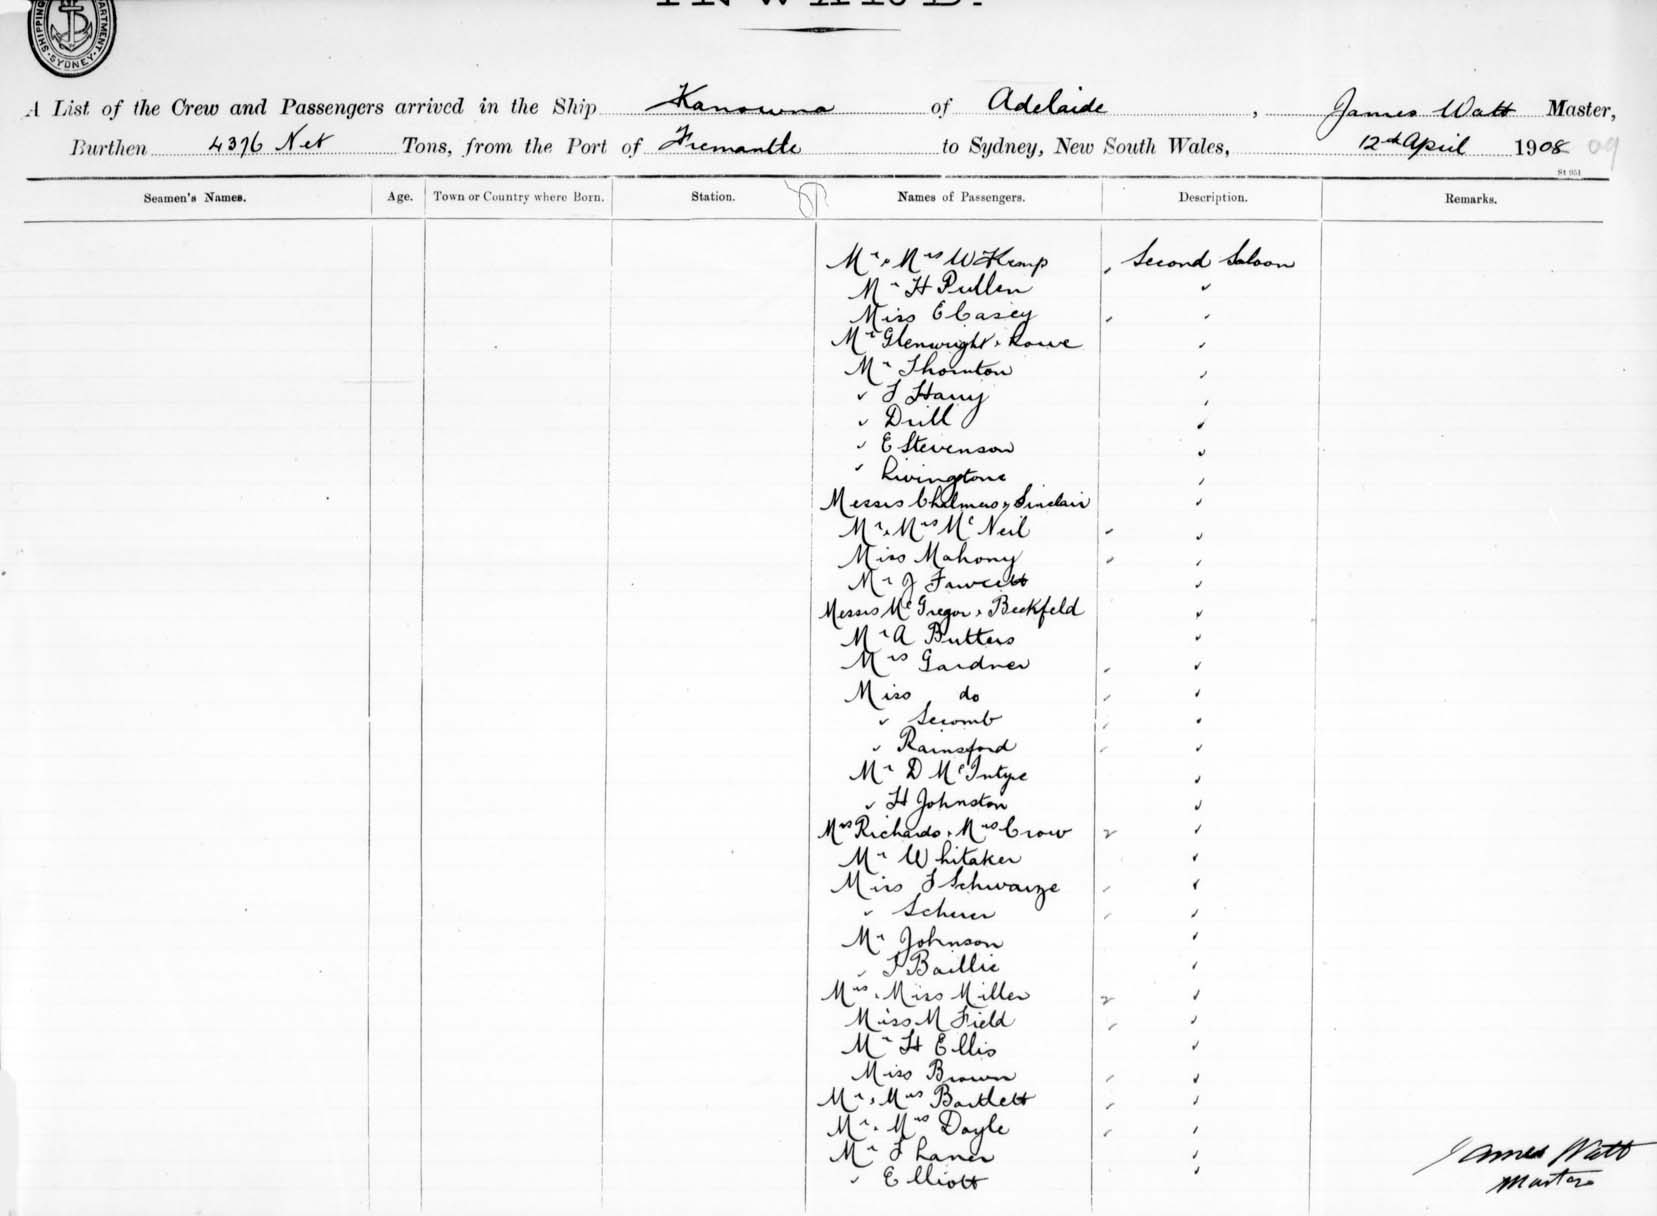 INWARD.
SHIPPING DEPARTMENT SYDNEY
A List of the Crew and Passengers arrived in the Ship Kanowna of Adelaide, James Watt Master,
Burthen 4376 Net Tons, from the Port of Fremantle to Sydney, New South Wales, 12th April 1908 09
St 951
Seamen's Names. Age. Town or Country where Born. Station. Names of Passengers. Description. Remarks.
Mr & Mrs W Kemp Second Saloon
Mr H Pullen "
Miss E Casey "
Mr Glenwright & Rowe "
Mr Thornton "
" F Harry "
" Drill "
" E Stevenson "
" Livingstone "
Messrs Chalmers & Sinclair "
Mr & Mrs Mc Neil "
Miss Mahony "
Mr J Fawcett "
Messrs Mc Gregor & Beckfeld "
Mr A Butters "
Mrs Gardner "
Miss do "
" Secomb "
" Rainsford "
Mr D McIntyre "
" H Johnston "
Mrs Richards & Mrs Crow 2 "
Mr Whitaker "
Miss F Schwarze "
" Scherer "
Mr Johnson "
" F Baillie "
Mrs & Miss Miller 2 "
Miss M Field "
Mr H Ellis "
Miss Brown "
Mr & Mrs Bartlett "
Mr & Mrs Doyle "
Mr F Laner "
" Elliott "
James Watt
Master